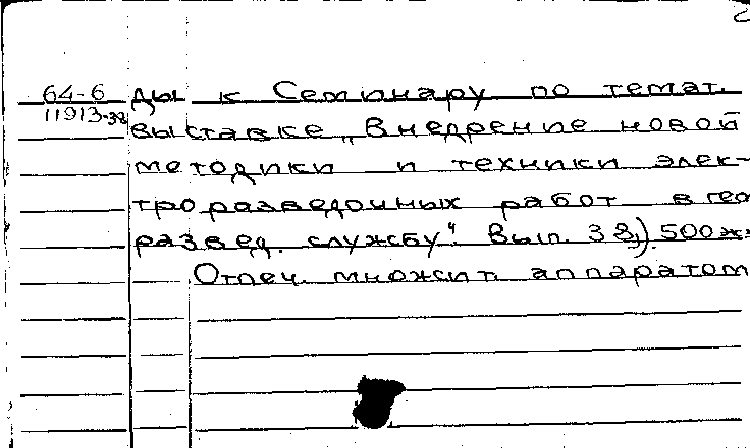 2
64-6 ды к Семинару по темат.
11913-38 выставке „Внедрение новой
методики и техники элек-
троразведочных работ в гео
развед. службу". Вып. 38) 500 экз
Отпеч. множит. аппаратом